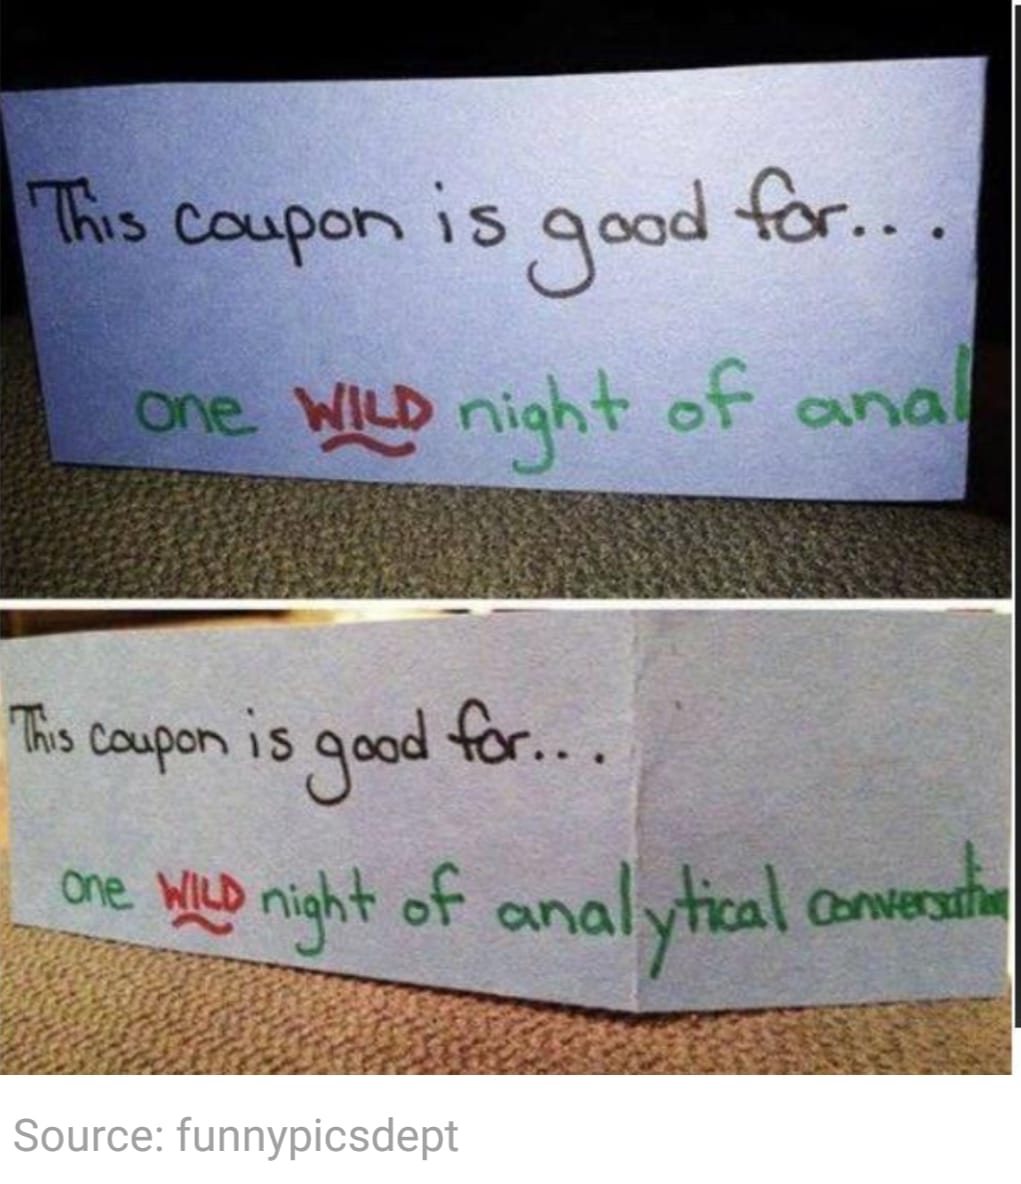 This coupon is good for....
one WILD night of anal
This coupon is good for....
one WILD night of analytical conversation
Source: funnypicsdept